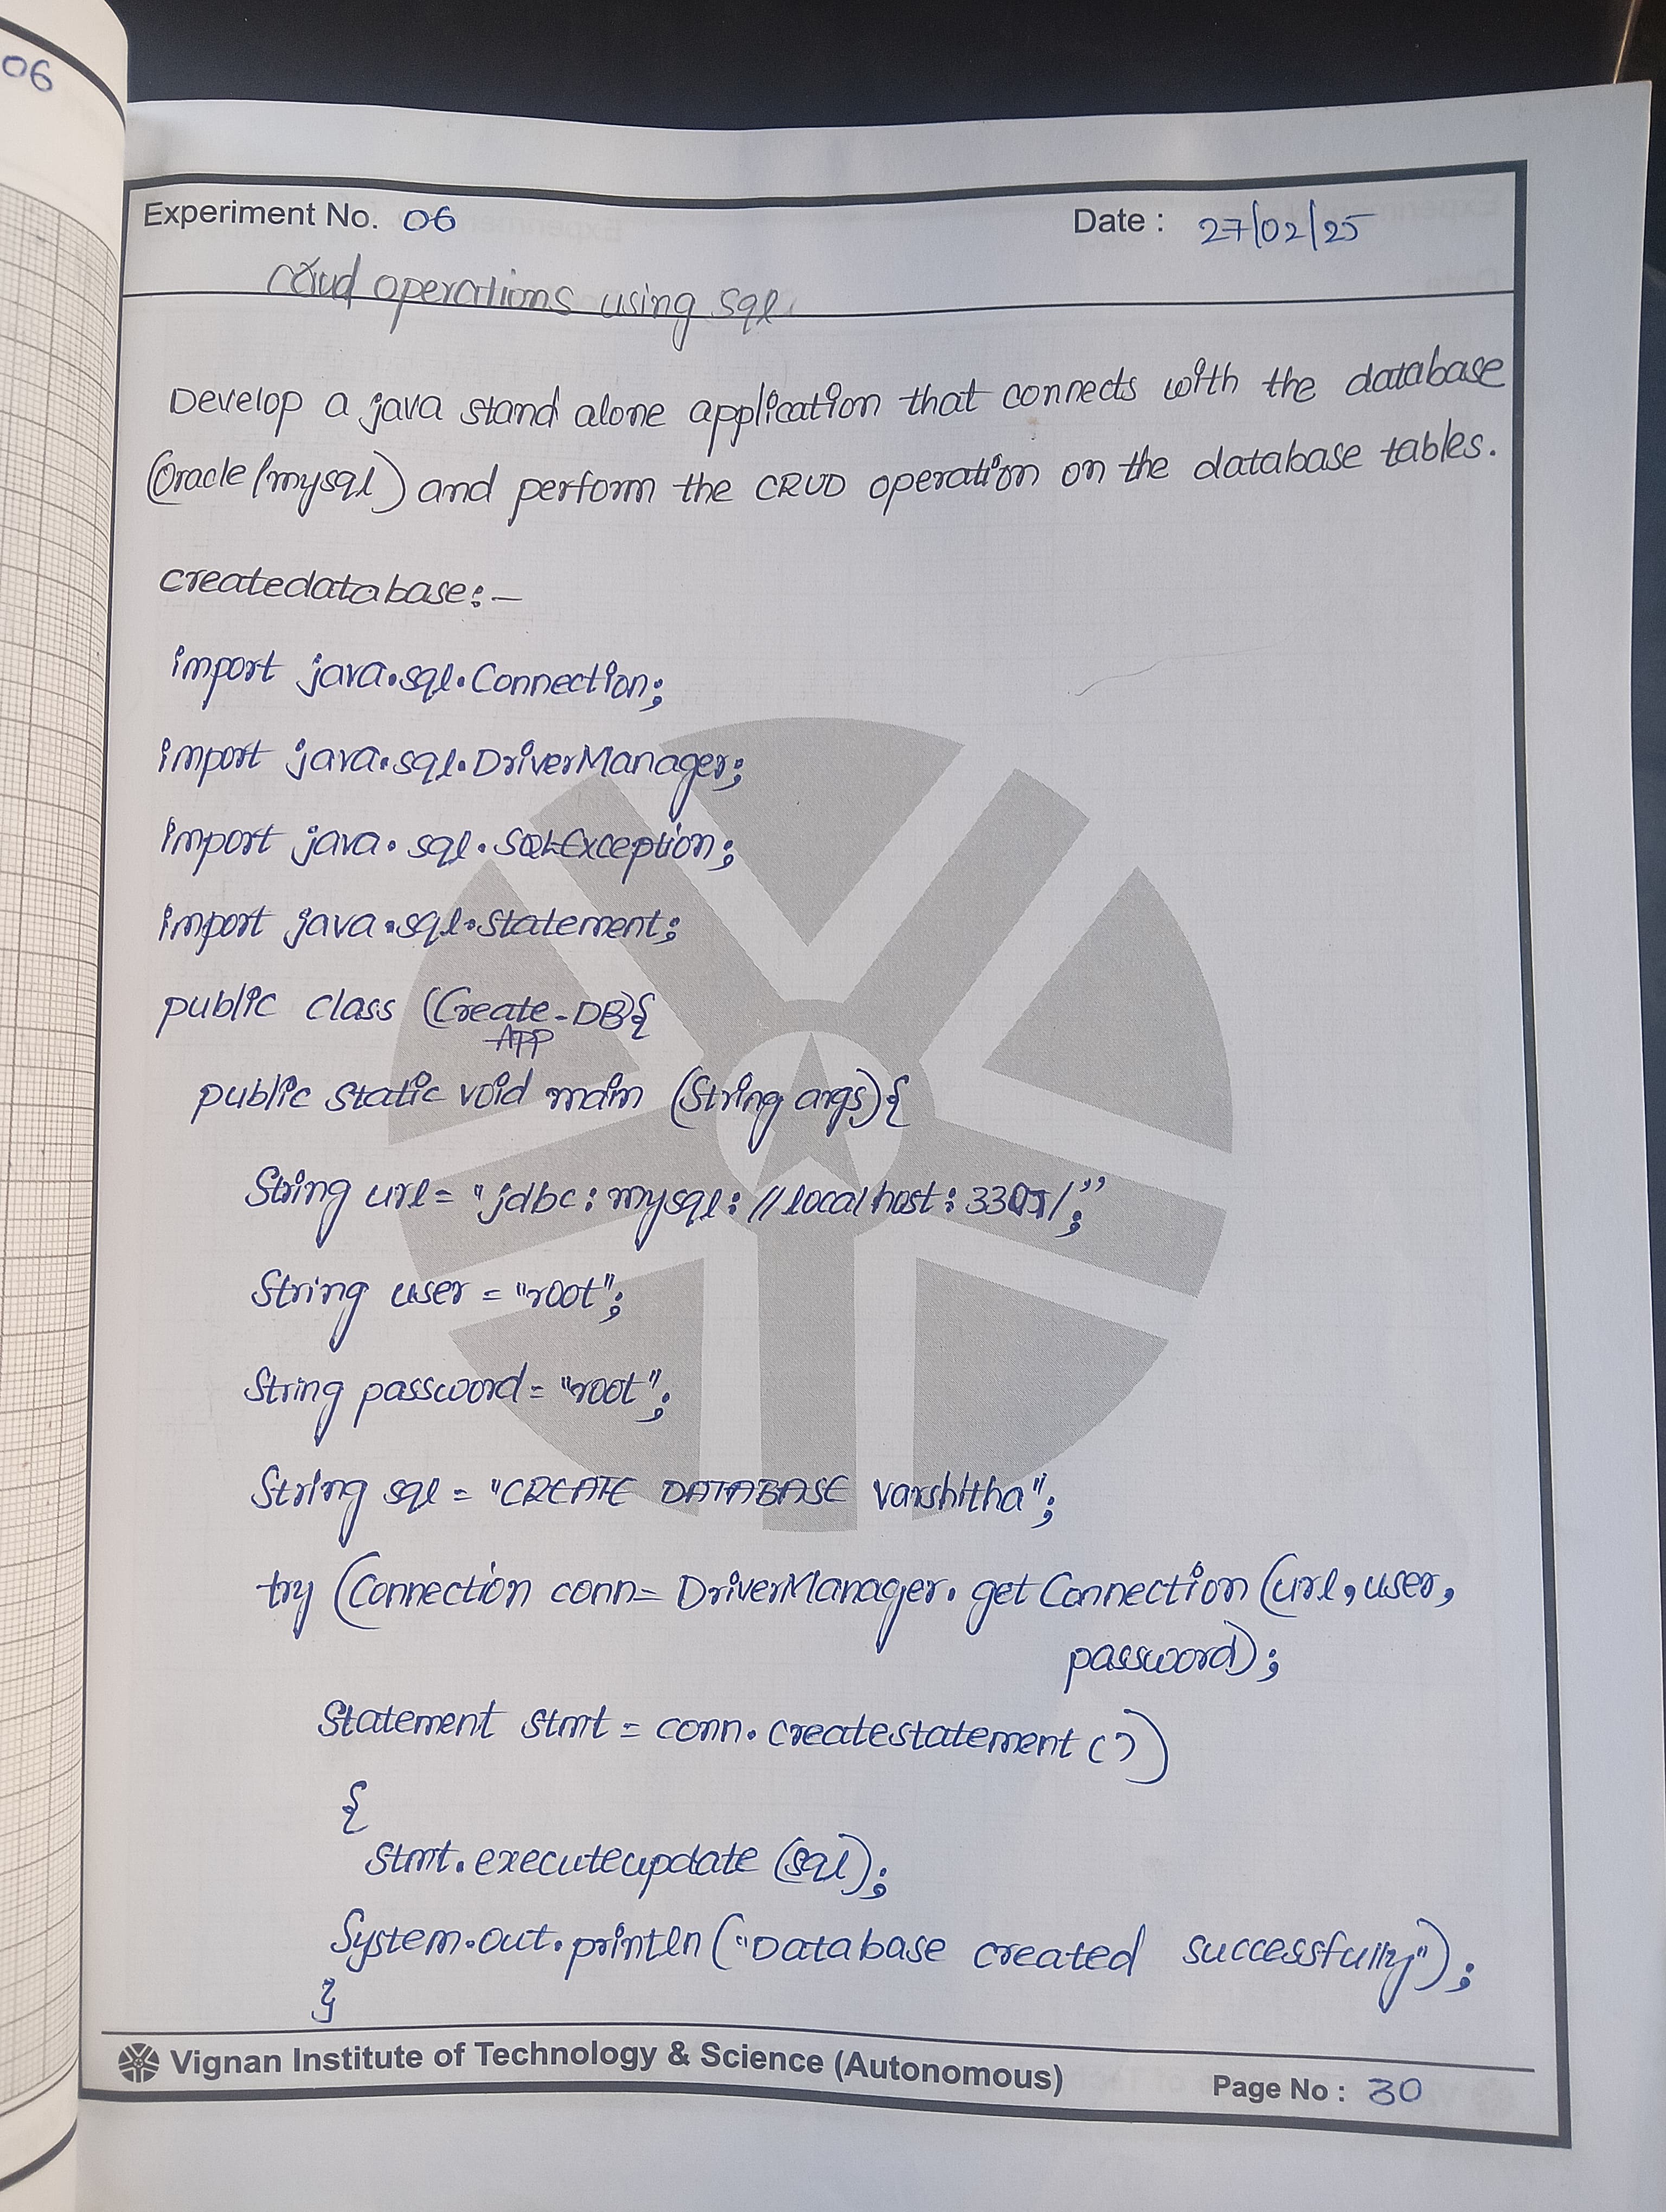 06
Experiment No. 06
Date : 27/02/25
Crud operations using sql
Develop a java stand alone application that connects with the database
(Oracle/mysql) and perform the CRUD operation on the database tables.
createdatabase:-
import java.sql.Connection;
import java.sql.DriverManager;
import java.sql.SQLException;
import java.sql.Statement;
public class (Create-DB{
APP
public static void main (String args){
String url= "jdbc: mysql: //localhost:
String user = "root";
String password= "root";
String sql = "CREATE DATABASE varshitha";
try (Connection conn= DriverManager.getConnection (url,user,
password);
Statement stmt = conn.createstatement())
{
stmt.executeupdate (sql);
System.out.println("Database created successfully");
}
Vignan Institute of Technology & Science (Autonomous)
Page No : 30